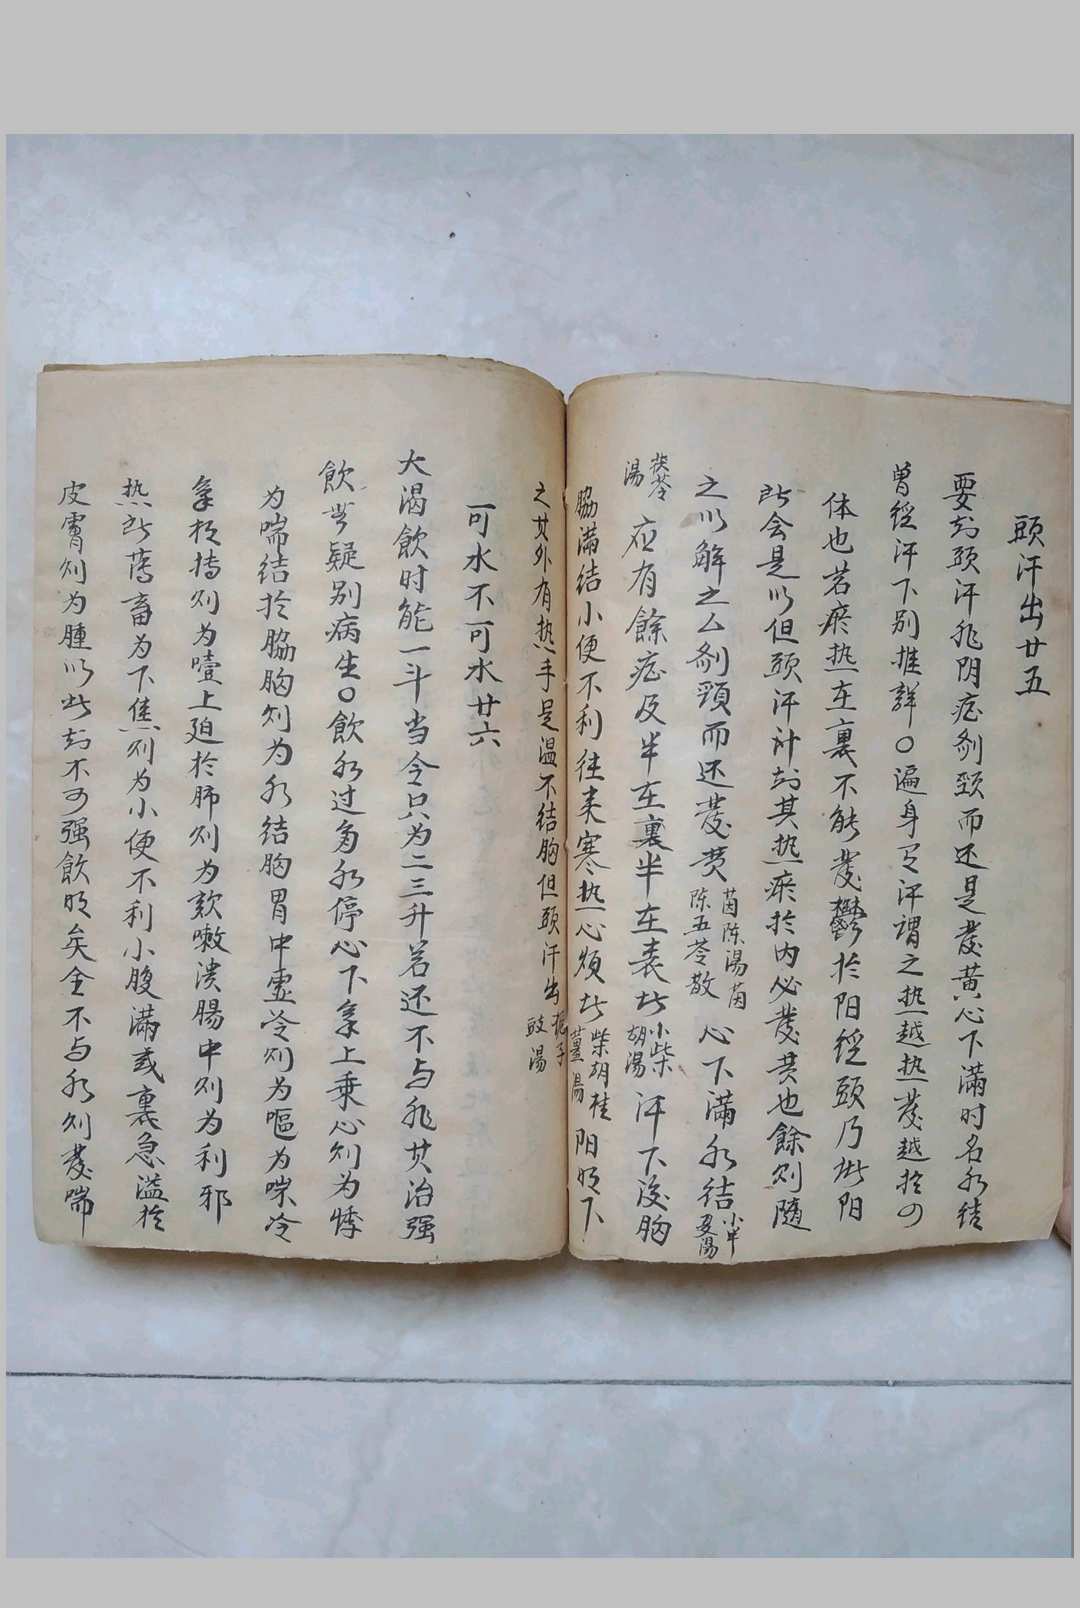 頭汗出廿五
要知頭汗非阴症剂頸而还是發黄心下滿时名水结
曾经汗下别推詳〇遍身有汗謂之热越热發越於四
体也若瘀热在裏不能發鬱於阳经頭乃諸阳
所会是以但頭汗出知其热瘀於内必發黄也餘則隨
之以解之么剂頸而还發黄茵陈湯茵陈五苓散心下滿水结小半夏湯
茯苓湯应有餘症及半在裏半在表此小柴胡湯汗下後胸
脇滿结小便不利往来寒热心烦此柴胡桂薑湯阳明下
之其外有热手足温不结胸但頭汗出栀子豉湯
可水不可水廿六
大渴飲时能一斗当令只为二三升若还不与非其治强
飲無疑别病生〇飲水过多水停心下氣上乗心則为悸
为喘结於脇胸則为水结胸胃中虚冷則为嘔为哕冷
氣相搏則为噎上廹於肺則为欬嗽溃腸中則为利邪
热所薄畜为下焦則为小便不利小腹滿或裏急溢於
皮膚則为腫以此知不可强飲明矣全不与水則發喘